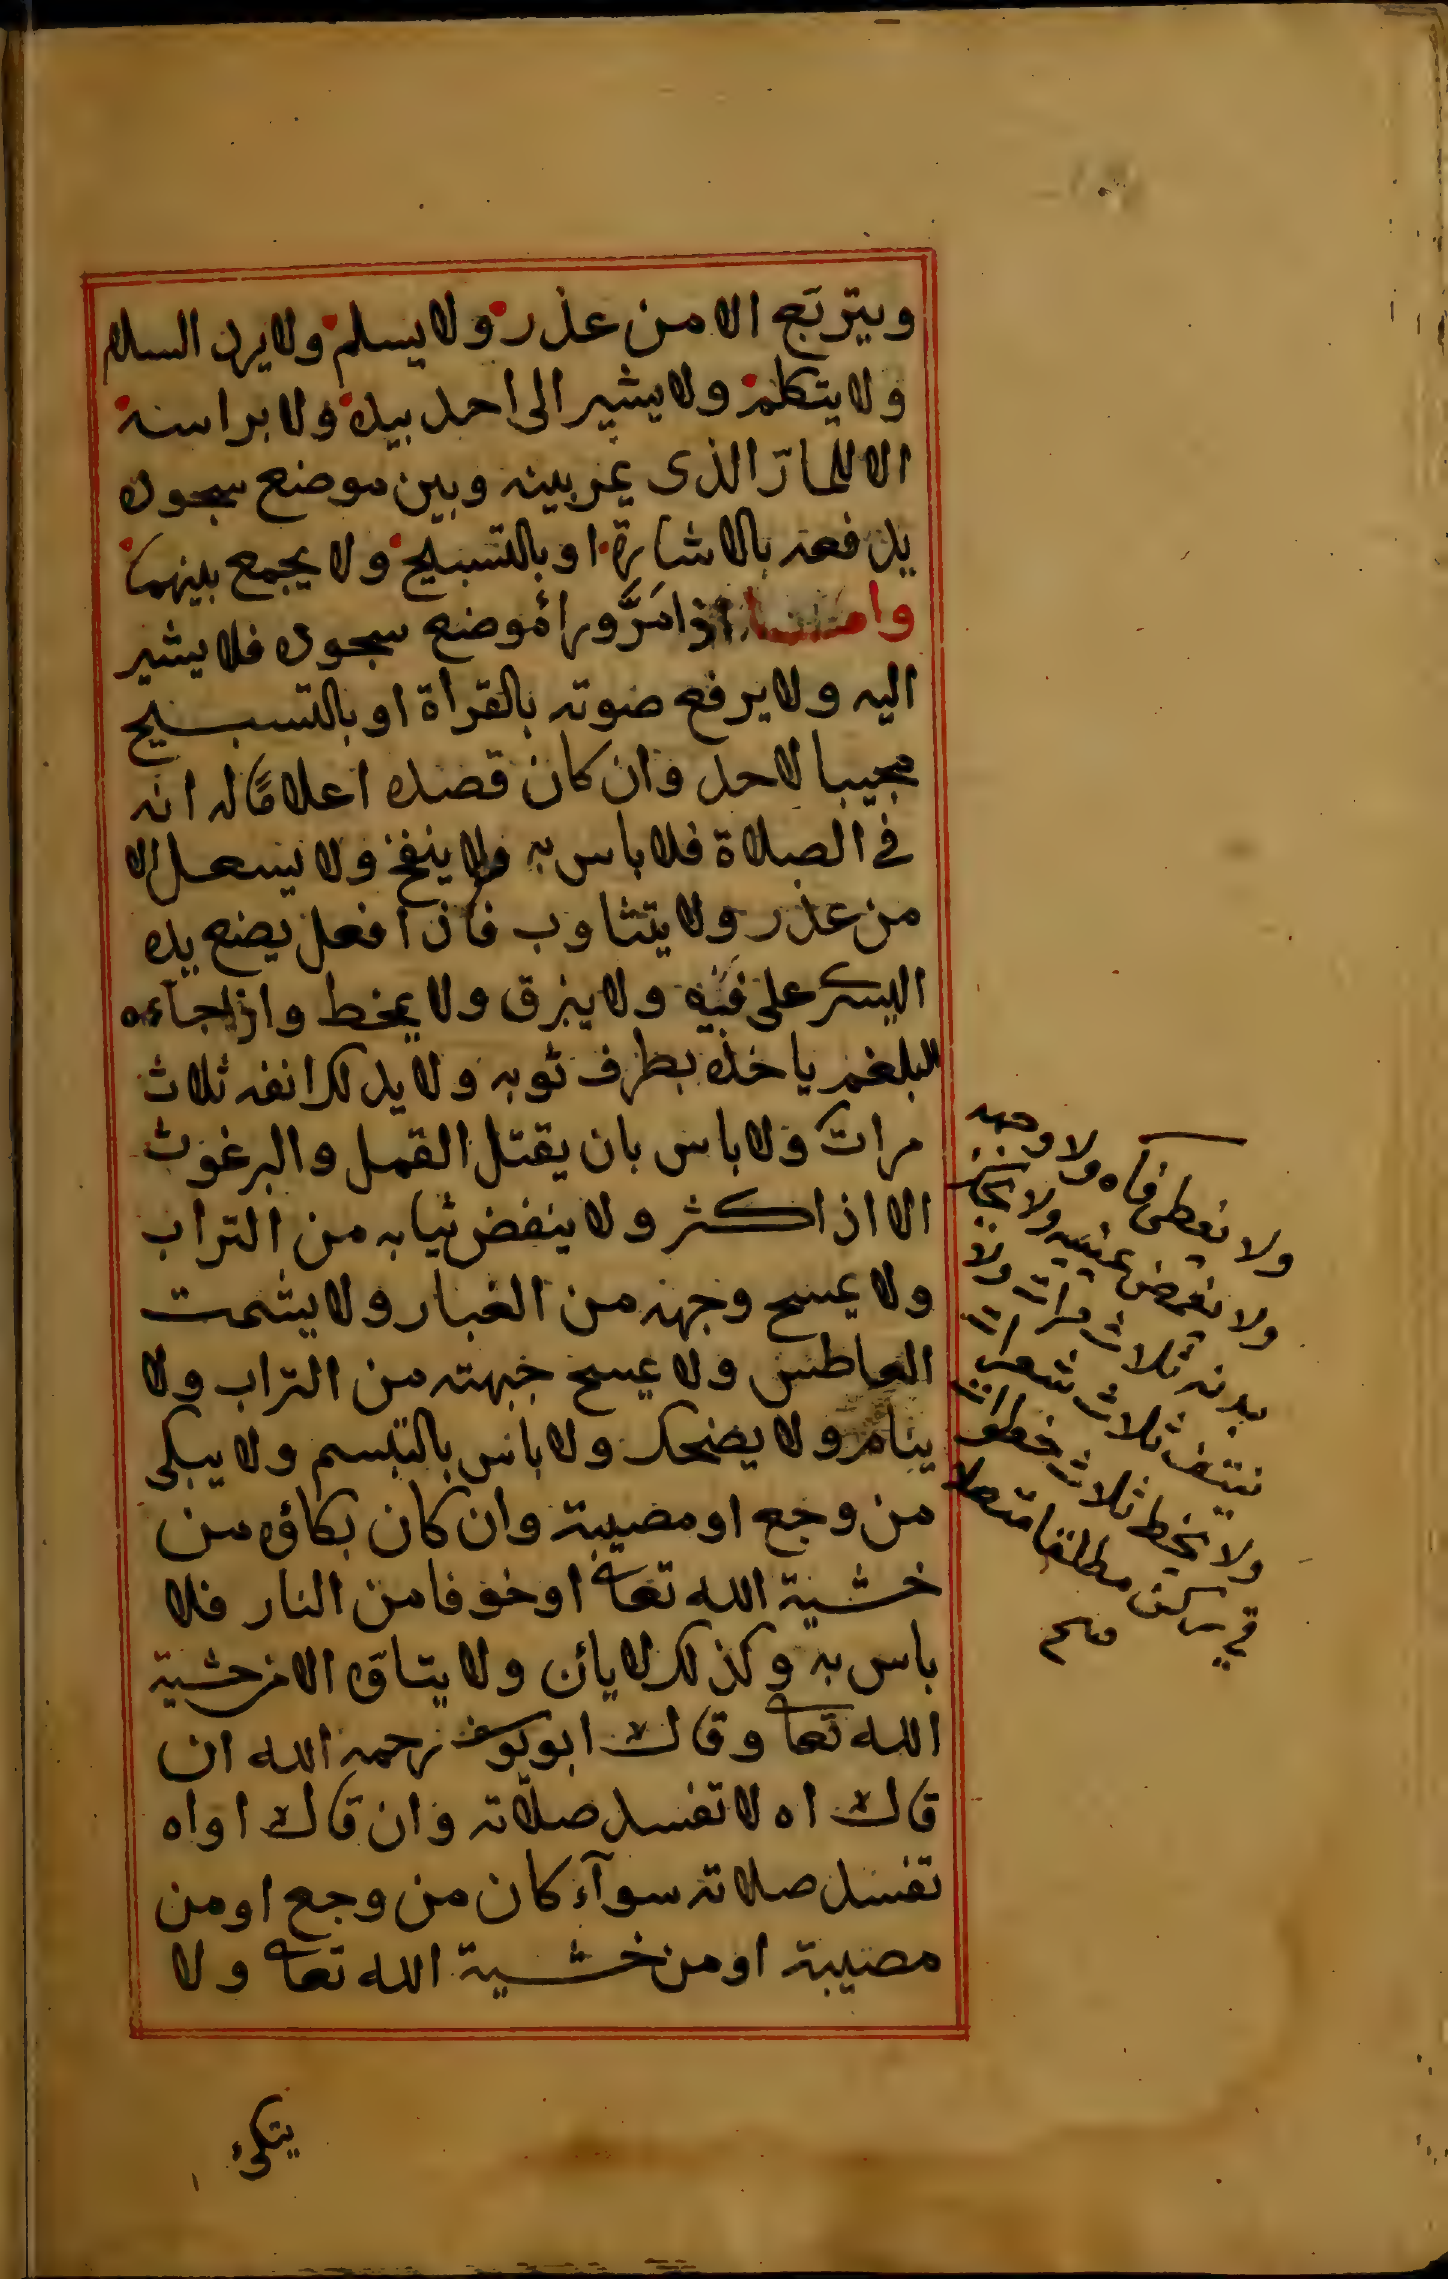 ويتربع الا من عذر ولا يسلم ولا يرد السلام
ولا يتكلم ولا يشير الى احد بيده ولا براسه
الا للمارّ الذى يمر بينه وبين موضع سجوده
يدفعه بالاشارة او بالتسبيح ولا يجمع بينهما
واما اذا مرَّ وراء موضع سجوده فلا يشير
اليه ولا يرفع صوته بالقراة او بالتسبيح
مجيبا لاحد وان كان قصده اعلامًا له انه
في الصلاة فلا باس به ولا ينفخ ولا يسعل الا
من عذر ولا يتثاوب فاذا فعل يضع يده
اليسر على فيه ولا يبزق ولا يمخط واذا جاءه
البلغم ياخذه بطرف ثوبه ولا يدلك انفه ثلاث
مرات ولا باس بان يقتل القمل والبرغوث
الا اذا كثر ولا ينفض ثيابه من التراب
ولا يمسح وجهه من الغبار ولا يشمت
العاطس ولا يمسح جبهته من التراب ولا
ينام ولا يضحك ولا باس بالتبسم ولا يبكى
من وجع او مصيبة وان كان بكاؤه من
خشية الله تعا او خوفا من النار فلا
باس به وكذلك لا يائن ولا يتاوه الا من خشية
الله تعا وقال ابو يوسف رحمه الله ان
قال اه لا تفسد صلاته وان قال اواه
تفسد صلاته سوآء كان من وجع او من
مصيبة او من خشية الله تعا ولا
يتكئ
ولا يغطى فاه ولا وجهه
ولا يغمض عينيه ولا يحك
بدنه ثلاث مرات ولا
ينتف ثلاث شعرات
ولا يخط ثلاث خطوات
في ركن مطلقا متصلا